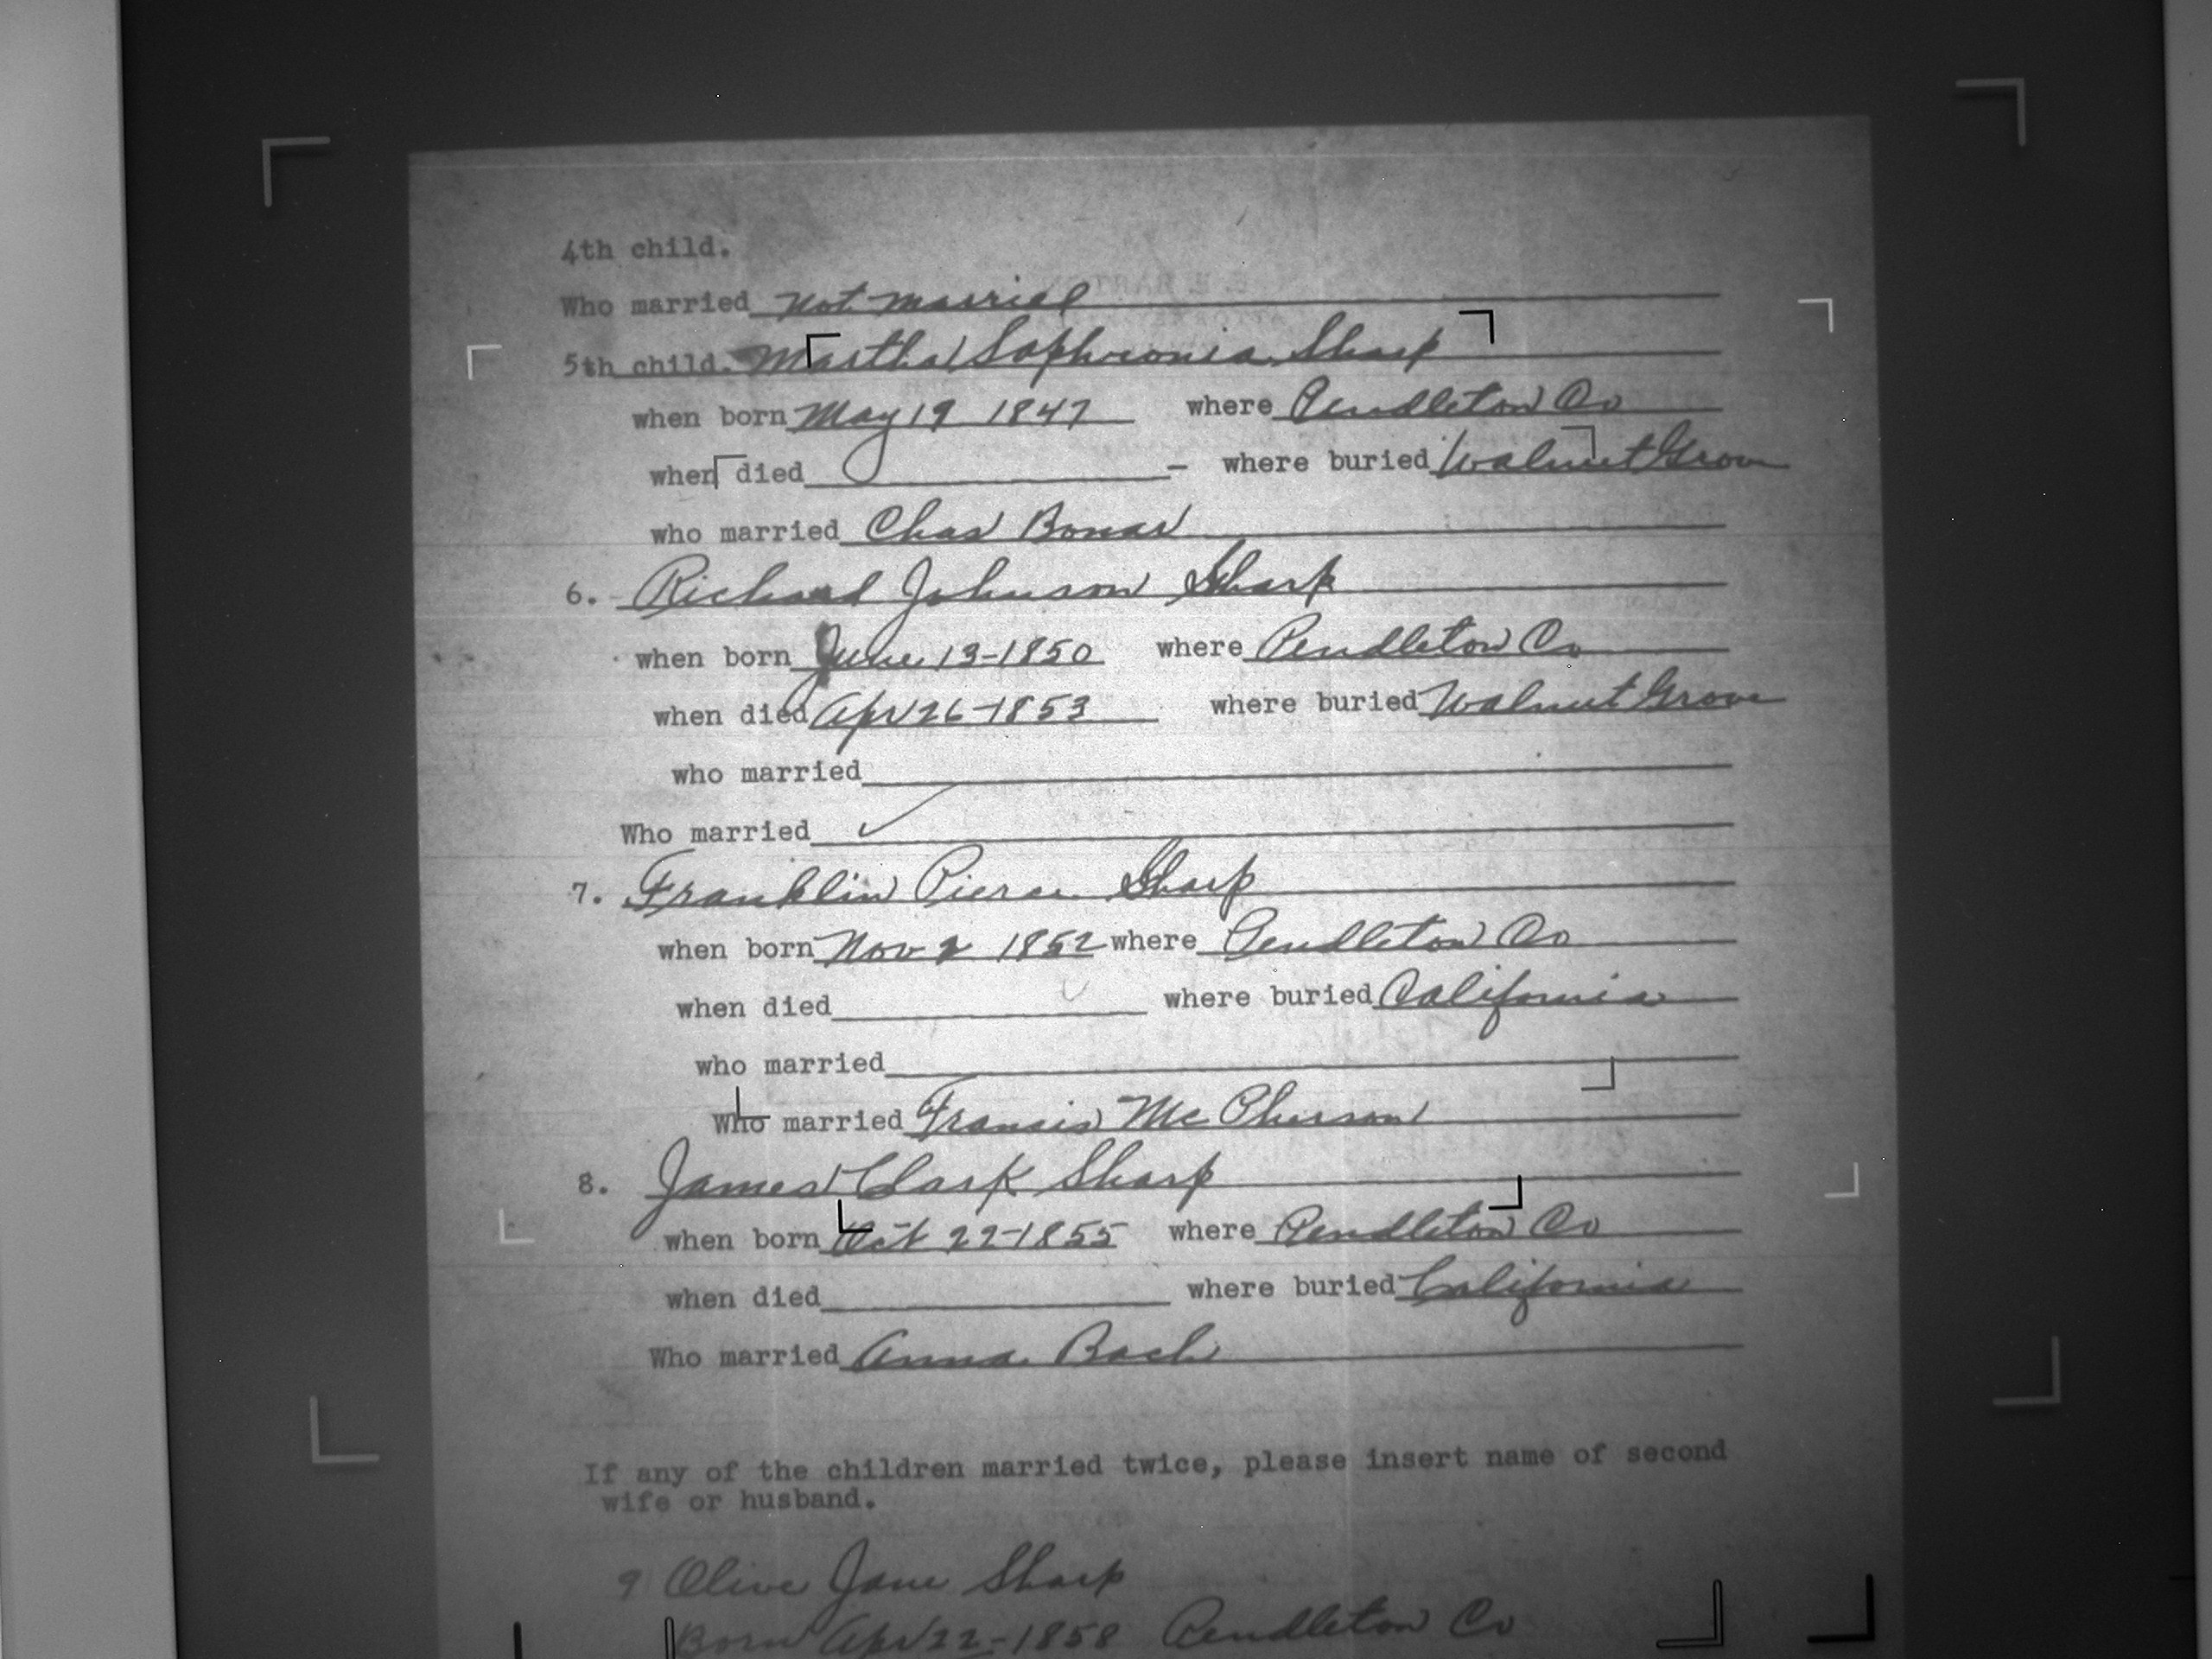 4th child.
Who married not married
5th child. Martha Sophronia Sharp
when born May 19 1847 where Pendleton Co
when died - where buried Walnut Grove
who married Chas Bonar
6. Richard Johnson Sharp
when born June 13-1850 where Pendleton Co
when died Apr 26-1853 where buried Walnut Grove
who married
Who married
7. Franklin Pierce Sharp
when born Nov 2 1852 where Pendleton Co
when died where buried California
who married
Who married Francis McPherson
8. James Clark Sharp
when born Oct 22-1855 where Pendleton Co
when died where buried California
Who married Anna Bach
If any of the children married twice, please insert name of second
wife or husband.
9 Olive Jane Sharp
Born Apr 22-1858 Pendleton Co